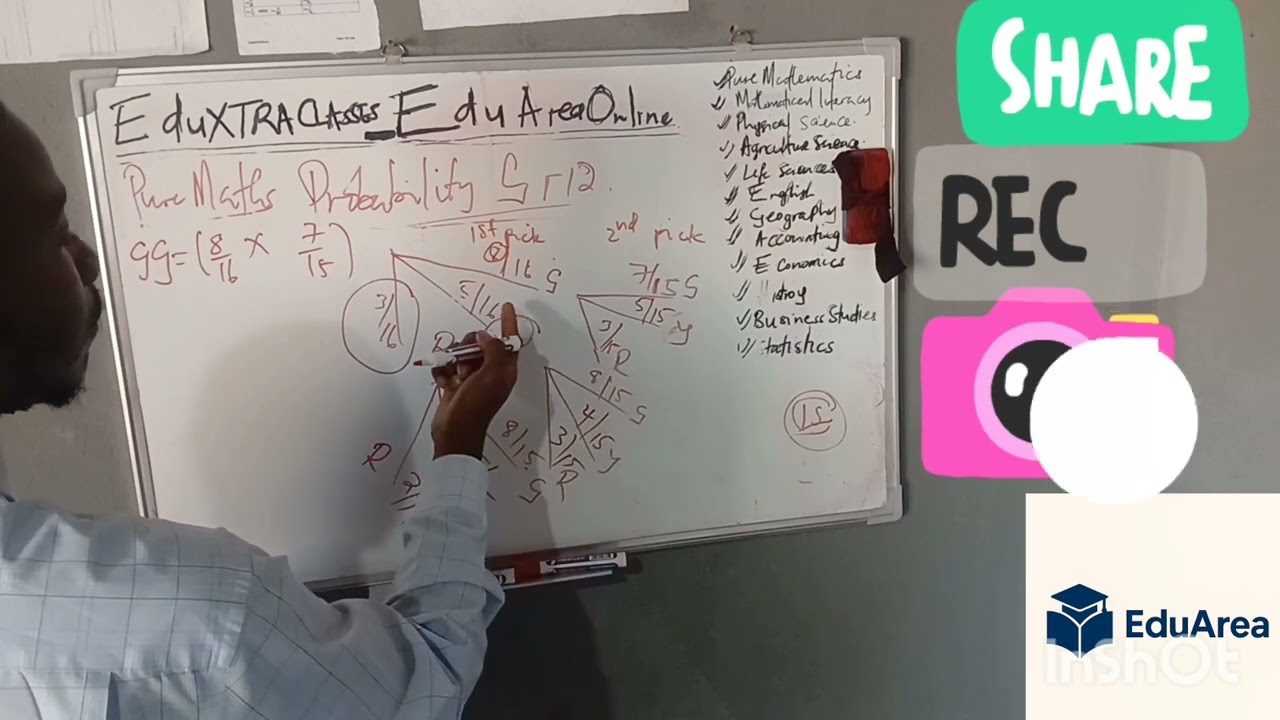 EduXTRACLASSES_EduAreaOnline
Pure Maths Probability Gr12.
GG=(8/16 x 7/15)
1st pick
2nd pick
16 G
3/16
5/16
7/15 G
5/15 y
3/15
R
8/15 G
4/15 y
3/15
R
R
8/15
G
Pure Mathematics
Mathematical literacy
Physical Science.
Agriculture Science
Life Sciences
English
Geography
Accounting
Economics
Business Studies
Statistics
15
SHARE
REC
EduArea
InShOt